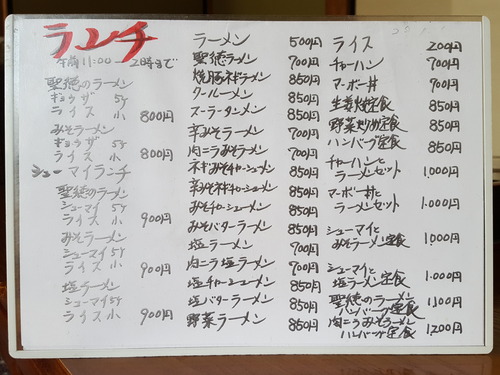 ランチ
午前11:00 2時まで
聖徳のラーメン
ギョウザ 5ケ
ライス 小 800円
みそラーメン
ギョウザ 5ケ
ライス 小 800円
シューマイランチ
聖徳のラーメン
シューマイ 5ケ
ライス 小 900円
みそラーメン
シューマイ 5ケ
ライス 小 900円
塩ラーメン
シューマイ 5ケ
ライス 小 900円
ラーメン 500円
聖徳ラーメン 700円
焼豚ネギラーメン 850円
クールーメン 850円
スーラータンメン 850円
辛みそラーメン 700円
肉ニラみそラーメン 850円
ネギみそチャーシューメン 850円
辛みそネギチャーシューメン 850円
みそチャーシューメン 850円
みそバターラーメン 850円
塩ラーメン 700円
肉ニラ塩ラーメン 700円
塩チャーシューメン 850円
塩バターラーメン 850円
野菜ラーメン 850円
ライス 200円
チャーハン 700円
マーボー丼 900円
生姜焼定食 850円
野菜炒め定食 850円
ハンバーグ定食 850円
チャーハンと
ラーメンセット 1,000円
マーボー丼と
ラーメンセット 1,000円
シューマイと
みそラーメン定食 1,000円
シューマイと
塩ラーメン定食 1,000円
聖徳のラーメン
ハンバーグ定食 1,100円
肉ニラみそラーメン
ハンバーグ定食 1,200円